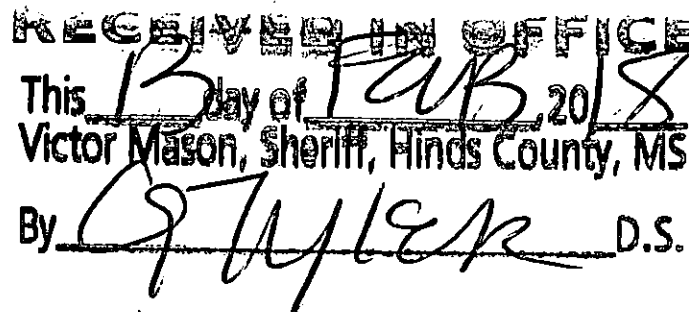 RECEIVED IN OFFICE
This 13 day of FEB, 2018
Victor Mason, Sheriff, Hinds County, MS
By G TYLER D.S.